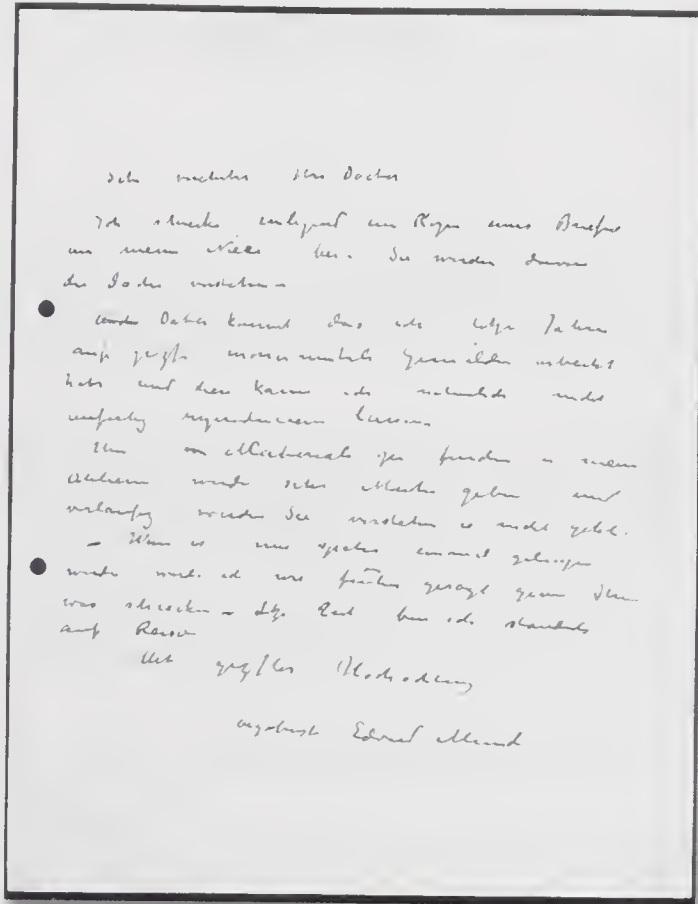 Sehr verehrter Herr Doctor
Ich schicke einliegend eine Kopie eines Briefes
an meine Niece hin. Sie werden daraus
die Sache verstehen –
Dabei kommt das ich letzte Jahren
auf grosse monumentale gemälden arbeitet
habe und diese kann ich natürlich nicht
unfertig reproducieren lassen
Um Material zu finden in meine
Atelierr würde sehr Mühe geben und
vorläufig werden Sie verstehen es nicht geht.
– Wenn es mir später einmal gelingen
würde werde ich wie früher gesagt gern Ihnen
was schicken – letzte Zeit bin ich standends
auf Reisen
Mit grösster Hochachtung
ergebenst Edvard Munch